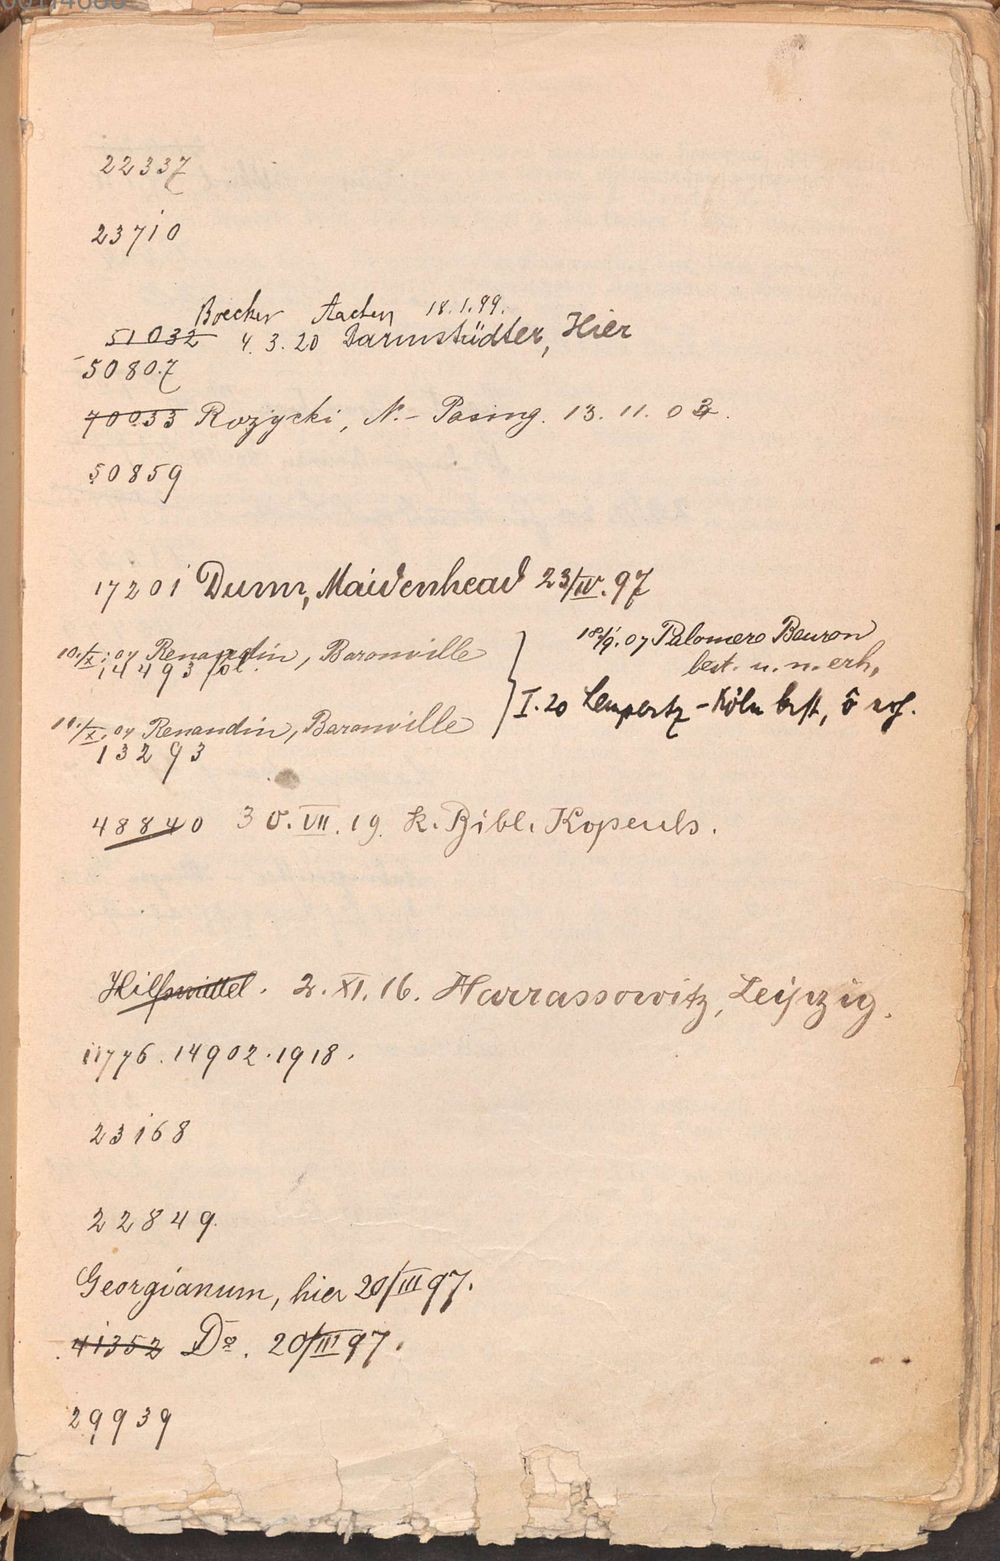 22337
23710
Boecker Aachen 18.1.99.
51032 4.3.20 Darmstädter, Hier
50807
70033 Rozycki, N.-Pasing. 13.11.03.
50859
17201 Dunn, Maidenhead 23/IV.97
10./X.04 Renaudin, Baronville
14493 fol.
18/9.07 Palomero Beuron
best. u. n. erh.
I.20 Lempertz-Köln best,
11./X.04 Renaudin, Baronville
13293
48840 30.VII.19 k. Bibl. Kopenh.
Hilfsmittel. 2.XI.16. Harrassowitz, Leipzig.
11776.14902.1918.
23168
22849.
Georgianum, hier 20/III 97.
41352 Do. 20/III 97.
29939